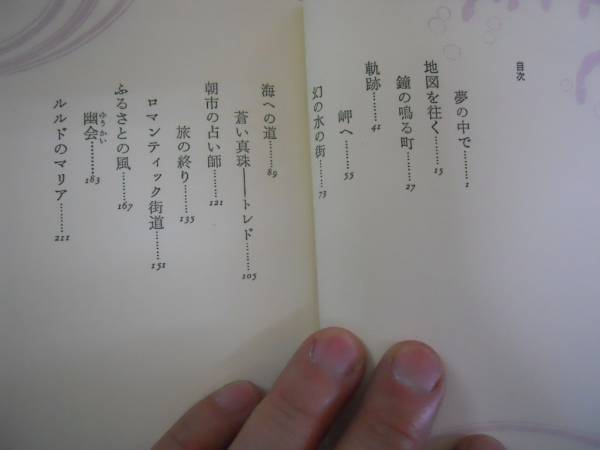 目次
夢の中で………1
地図を往く………15
鐘の鳴る町………27
軌跡………41
岬へ………55
幻の水の街………73
海への道………89
蒼い真珠――トレド………105
朝市の占い師………121
旅の終り………135
ロマンティック街道………151
ふるさとの風………167
幽会ゆうかい………183
ルルドのマリア………211